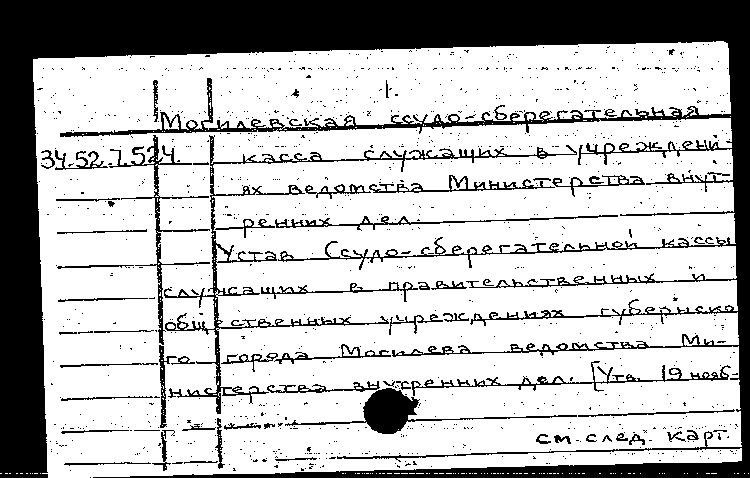 1.
Могилевская ссудо-сберегательная
34.52.7.524. касса служащих в учреждени-
ях ведомства Министерства внут-
ренних дел.
Устав Ссудо-сберегательной кассы
служащих в правительственных и
общественных учреждениях губернско
го города Могилева ведомства Ми-
нистерства внутренних дел. [Утв. 19 нояб-
см. след. карт.